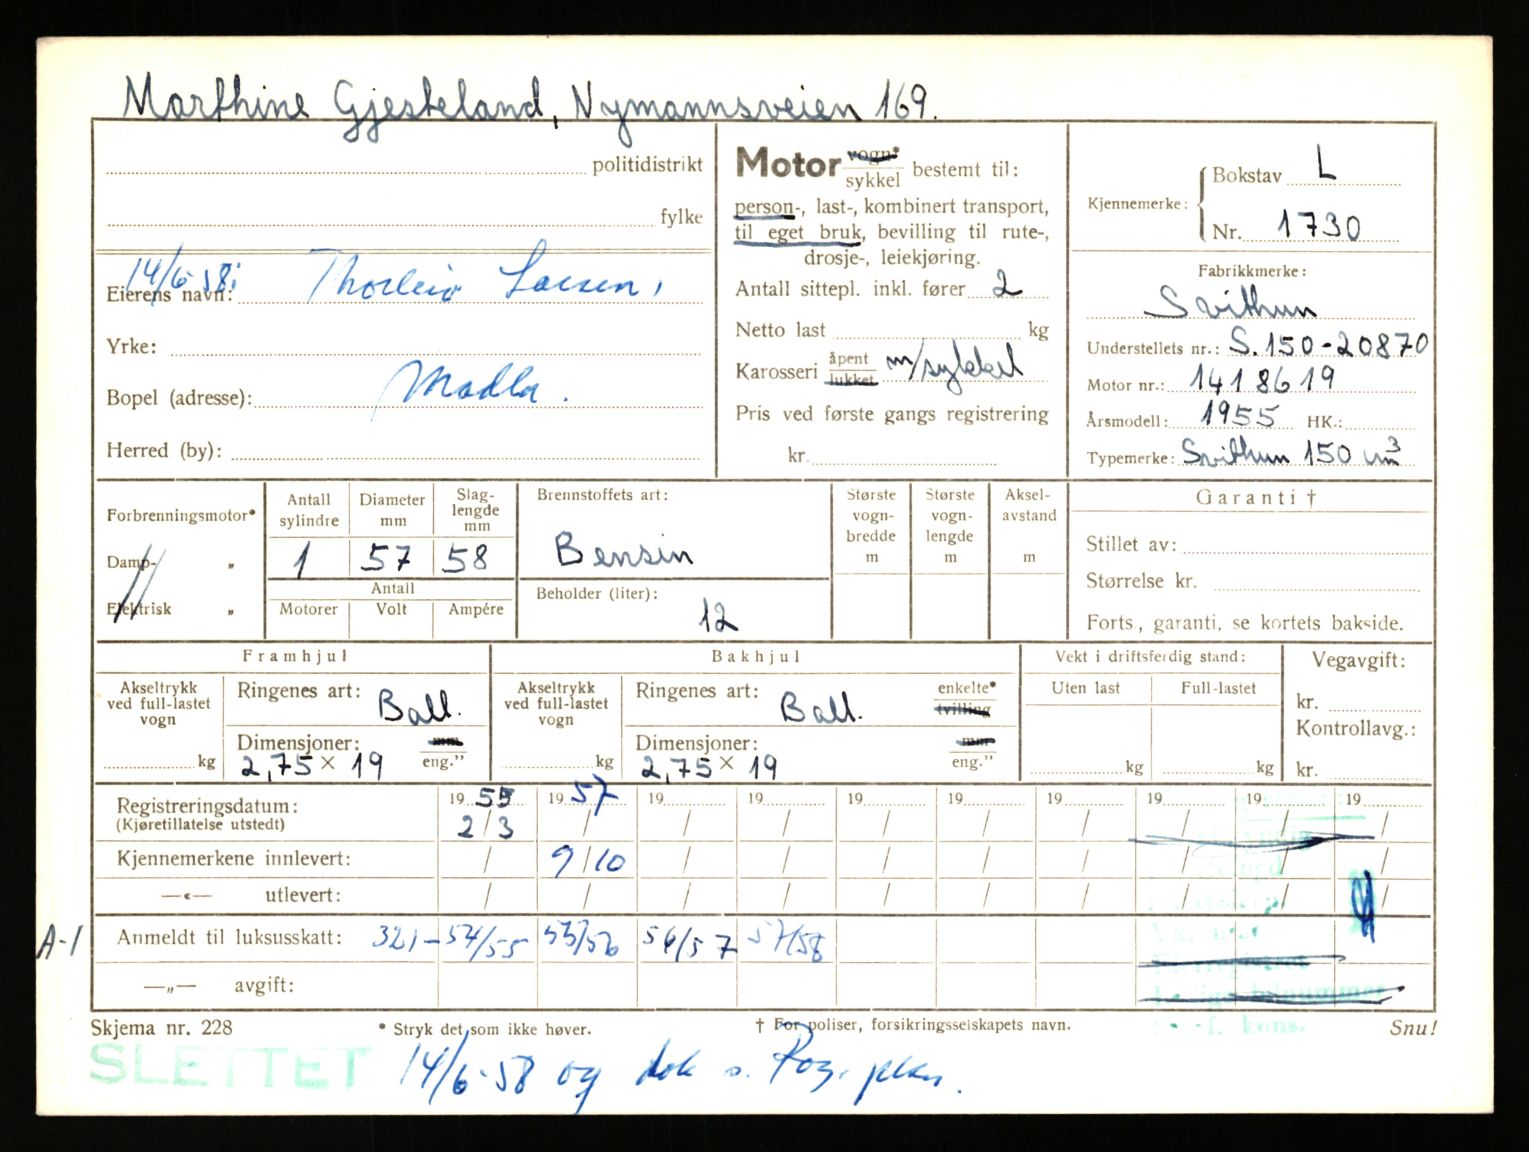 Marthine Gjesteland, Nymannsveien 169.
politidistrikt
fylke
14/6-58:
Eierens navn: Thorleiv Larsen,
Yrke:
Bopel (adresse): Madla.
Herred (by):
Motor vogn*
sykkel bestemt til:
person-, last-, kombinert transport,
til eget bruk, bevilling til rute-,
drosje-, leiekjøring.
Antall sittepl. inkl. fører 2
Netto last kg
Karosseri åpent
lukket m/sykkel
Pris ved første gangs registrering
kr.
Kjennemerke: Bokstav L
Nr. 1730
Fabrikkmerke:
Svithun
Understellets nr.: S.150-20870
Motor nr.: 1418619
Årsmodell: 1955 HK.:
Typemerke: Svithun 150 cm³
Forbrenningsmotor*
Damp- „
Elektrisk „
Antall sylindre
1
Diameter mm
57
Slag-
lengde
mm
58
Antall
Motorer Volt Ampére
Brennstoffets art:
Bensin
Beholder (liter):
12
Største
vogn-
bredde
m
Største
vogn-
lengde
m
Aksel-
avstand
m
Garanti †
Stillet av:
Størrelse kr.
Forts, garanti, se kortets bakside.
Framhjul
Akseltrykk
ved full-lastet
vogn
kg
Ringenes art: Ball.
Dimensjoner: mm
2,75 × 19 eng.”
Bakhjul
Akseltrykk
ved full-lastet
vogn
kg
Ringenes art: Ball. enkelte*
tvilling
Dimensjoner: mm
2,75 × 19 eng.”
Vekt i driftsferdig stand:
Uten last Full-lastet
kg kg
Vegavgift:
kr.
Kontrollavg.:
kr.
Registreringsdatum: 19 55 19 57 19 19 19 19 19 19 19 19
(Kjøretillatelse utstedt) 2/3 / / / / / / / / /
Kjennemerkene innlevert: / 9/10 / / / / / / / /
—«— utlevert: / / / / / / / / / /
A-1 Anmeldt til luksusskatt: 321- 54/55 55/56 56/57 57/58
—„— avgift:
Skjema nr. 228 * Stryk det som ikke høver. † For poliser, forsikringsselskapets navn. Snu!
SLETTET 14/6-58 og